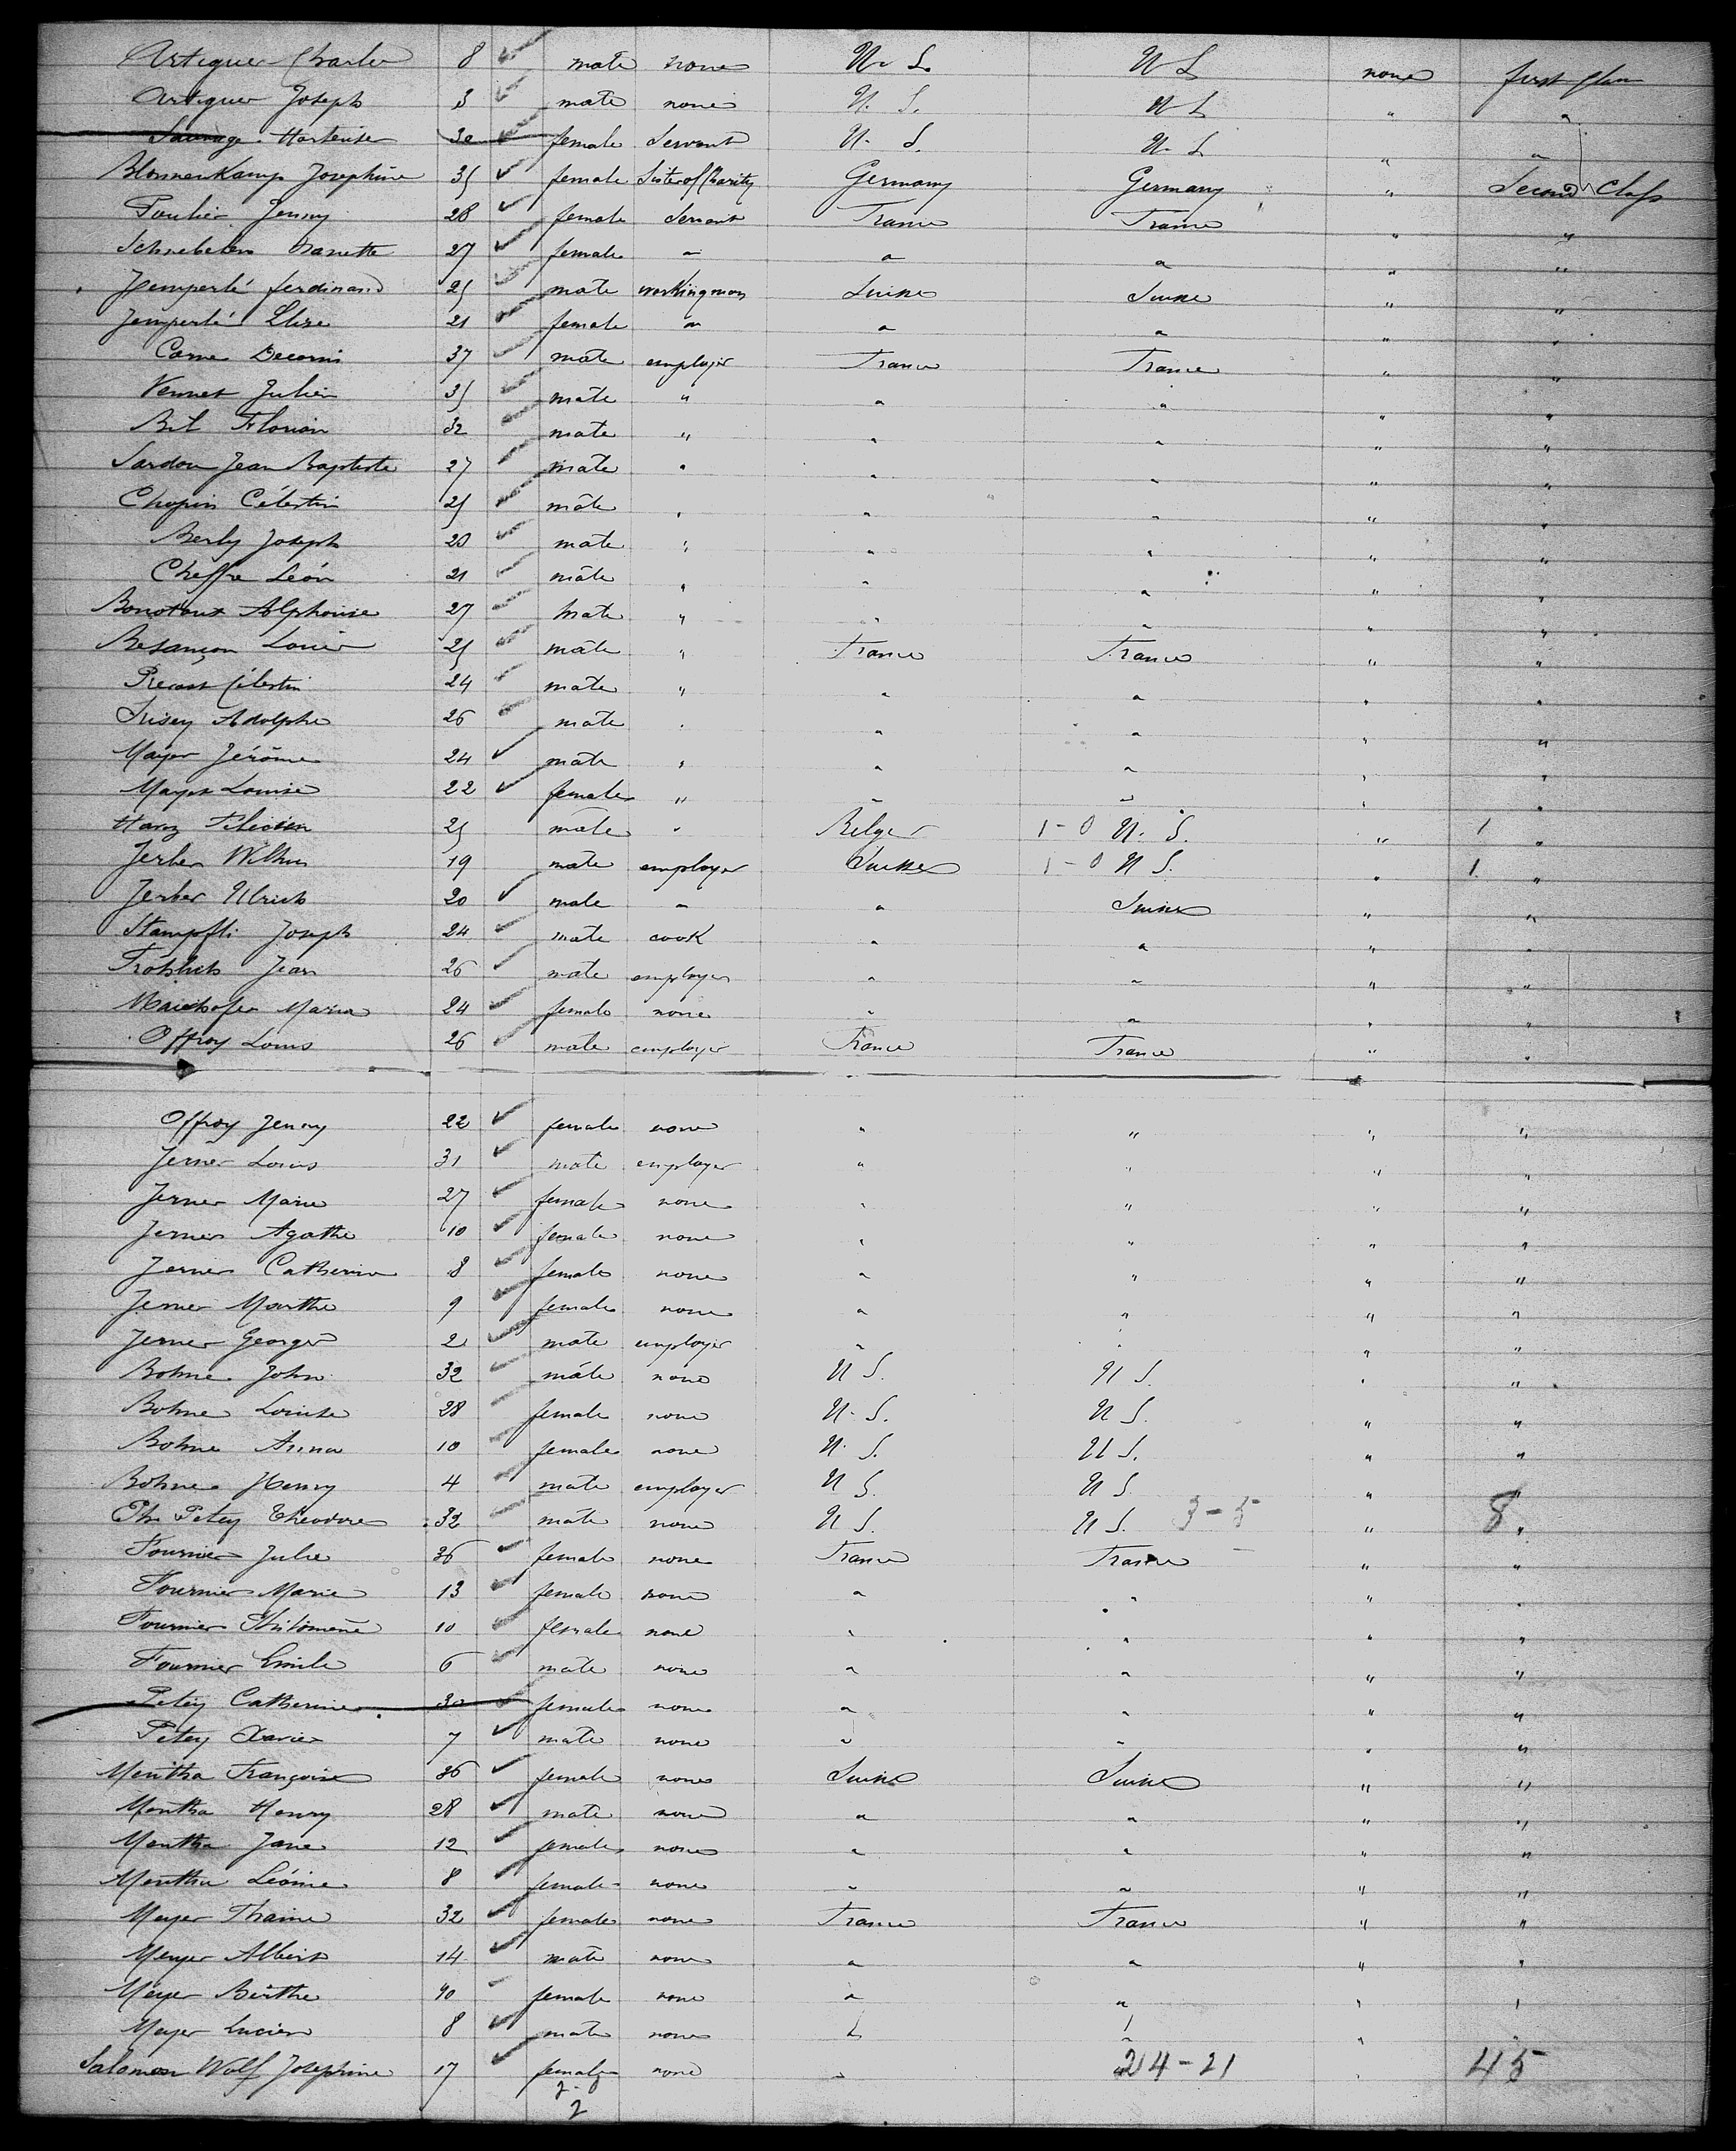 Artigues Charles 8 male none U. S. U S none first Class
Artigues Joseph 3 male none U. S. U S " "
Sauvage Hortense 30 female Servant U. S. U. S. " "
Blomenkamp Josephine 35 female Sister of Charity Germany Germany " Second Class
Poulier Jenny 28 female Servant France France " "
Nanette 27 female " " " " "
Jemperlé ferdinand 25 male workingman Suisse Suisse " "
Jemperlé Elise 21 female " " " " "
Carne 37 male employer France France " "
Vernet Julien 35 male " " " " "
Bil Florian 32 male " " " " "
Sardou Jean Baptiste 27 male " " " " "
Chopin Célestin 25 male " " " " "
Berly Joseph 20 male " " " " "
Cheffre Léon 21 male " " " " "
Alphonse 27 male " " " " "
Besançon Louis 25 male " France France " "
Célestin 24 male " " " " "
Adolphe 26 male " " " " "
Mayer Jérôme 24 male " " " " "
Mayer Louise 22 female " " " " "
25 male " Belge 1-0 U. S. " 1 "
Jerber 19 male employer Suisse 1-0 U S. " 1 "
Jerber Ulrich 20 male " " Suisse " "
Stampfli Joseph 24 male cook " " " "
Jean 26 male employer " " " "
Maria 24 female none " " " "
Offroy Louis 26 male employer France France " "
Offroy Jenny 22 female none " " " "
Jerner Louis 31 male employer " " " "
Jerner Marie 27 female none " " " "
Jerner Agathe 10 female none " " " "
Jerner Catherine 8 female none " " " "
Jerner Marthe 9 female none " " " "
Jerner George 2 male employer " " " "
Bohne John 32 male none U S. U S. " "
Bohne Louise 28 female none U. S. U S. " "
Bohne Anna 10 female none U. S. U S. " "
Bohne Henry 4 male employer U S. U S. " "
Petey Theodore 32 male none U S. U S. 3-5 " 8 "
Fournier Julie 36 female none France France " "
Fournier Marie 13 female none " " " "
Fournier Philomène 10 female none " " " "
Fournier Emile 6 male none " " " "
Petey Catherine 30 female none " " " "
Petey Xavier 7 male none " " " "
Mentha Françoise 36 female none Suisse Suisse " "
Mentha Henry 28 male none " " " "
Mentha Jane 12 female none " " " "
Mentha Léonie 8 female none " " " "
Meyer 32 female none France France " "
Meyer Albert 14 male none " " " "
Meyer Berthe 10 female none " " " "
Meyer Lucien 8 male none " " " "
Salomon Wolf Josephine 17 female none " 24-21 " 45
2